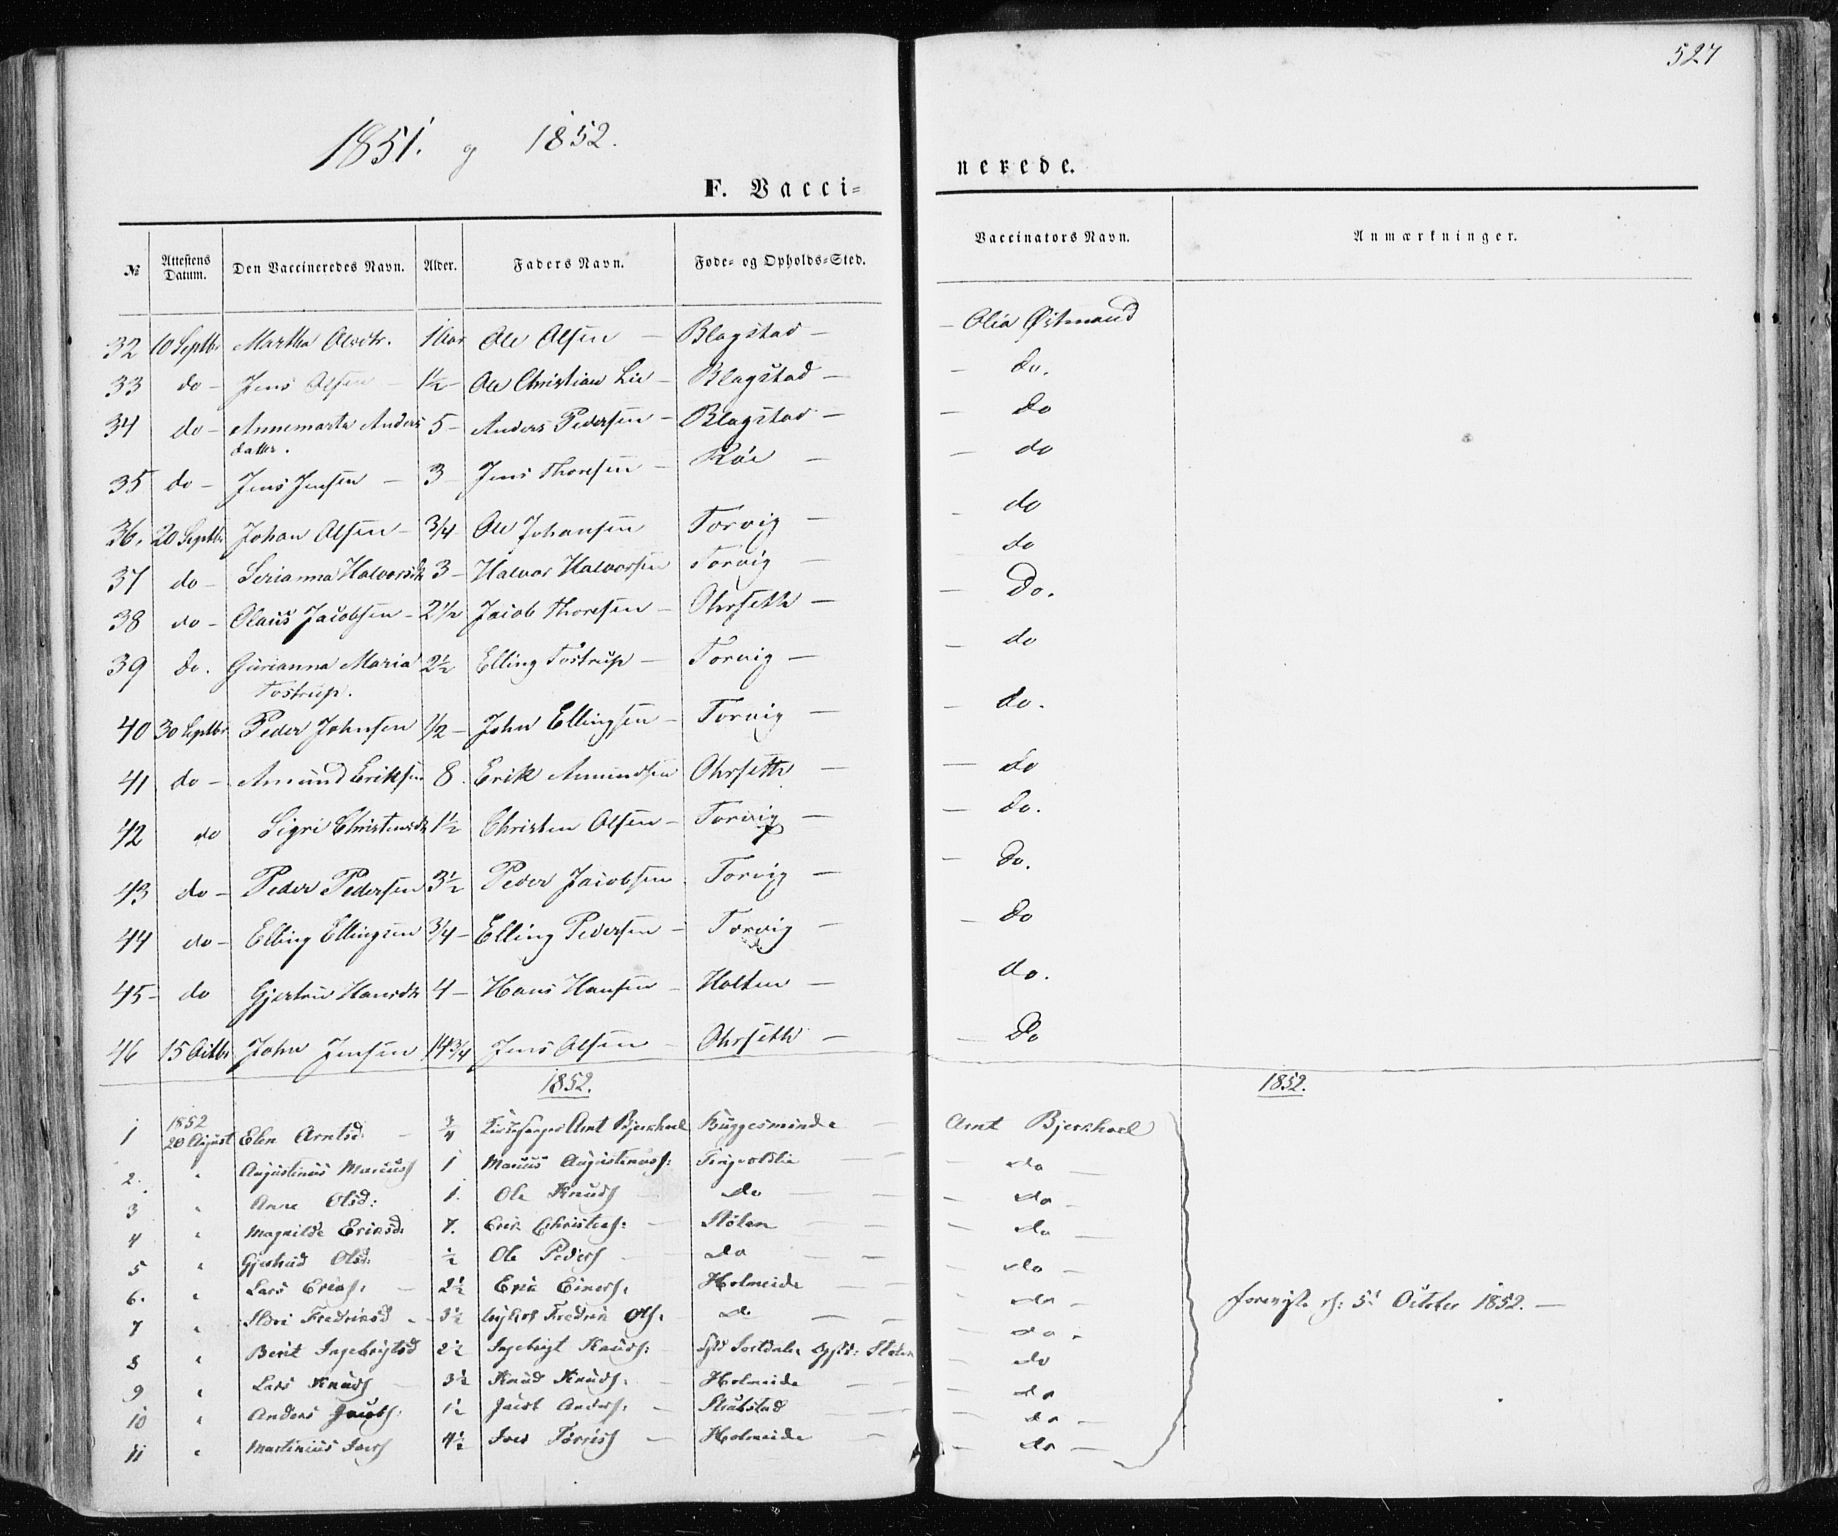 527
1851. og 1852.
F. Vacci=
nerede.
№ Attestens Datum. Den Vaccineredes Navn. Alder. Faders Navn. Føde- og Opholds-Sted. Vaccinators Navn. Anmærkninger.
32 10 Septbr Martha Olsdtr. 1 Aar Ole Olsen — Blagstad — — Olia Østmand
33 do — Jens Olsen — 1½ — Ole Christian Lie — Blagstad — — do.
34 do — Annemarta Anders 5 — Anders Pedersen — Blagstad — — do
datter.
35 do — Jens Jensen — 3 Jens Thoresen — Röe — — do
36. 20 Septbr Johan Olsen — 3/4 Ole Johansen Torvig — — do
37 do — Serianna Halvorsdtr 3 — Halvor Halvorsen Torvig — — do
38 do — Olaus Jacobsen — 2½ Jacob Thoresen — Ohrseth — — Do.
39 do. Gurianna Maria 2½ Elling Tostrup — Torvig — — do
Tostrup.
40 30 Septbr Peder Johnsen 1/2 — John Ellingsen — Torvig — — do.
41 do — Amund Eriksen 8. Erik Amundsen Ohrseth — — do
42 do Sigri Christensdtr 1½ Christen Olsen — Torvig — — do.
43 do — Peder Pedersen 3½ Peder Jacobsen Torvig — — do.
44 do — Elling Ellingsen 3/4 — Elling Pedersen — Torvig — — do
45 — do Gjertrud Hansdtr 4 — Hans Hansen — Holten — do.
46 15 Octbr John Jensen 14 3/4 Jens Olsen — Ohrseth — — Do
1852. 1852.
1852
1 20 August Elen Arntsd: — 3/4 Kirkesanger Arnt Bjerkhoel Buggesminde — Arnt Bjerkhoel
2. " Augustinus Mariuss 1 Marius Augustinuss: Tingvoldlie — — do —
3 " Anne Olsd: 1. Ole Knuds do — — do —
4 " Magnilde Eriksd: 7. Erik Christens: — Stölen — — do
5 " Gjertrud Olsd: ½ Ole Peders — do — — do —
6. " Lars Eriks: — 2½ Erik Einers: Holmeide — — do —
7 " Fredriksd — 3½ Fredrik Ols: do — — do — forevigt 5t October 1852. —
8 " Berit Ingebrigtsd 2½ Ingebrigt Knuds: — Stölen — do
9 " Lars Knuds — 3½ Knud Knuds: Holmeide — — do
10 " Anders Jacobs: 1½ Jacob Anders: — — do —
11 " Martinius Ivers 4½ Iver — Holmeide — — do —